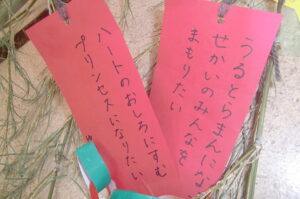 うるとらまんにな
せかいのみんなを
まもりたい
ハートのおしろにすむ
プリンセスになりたい